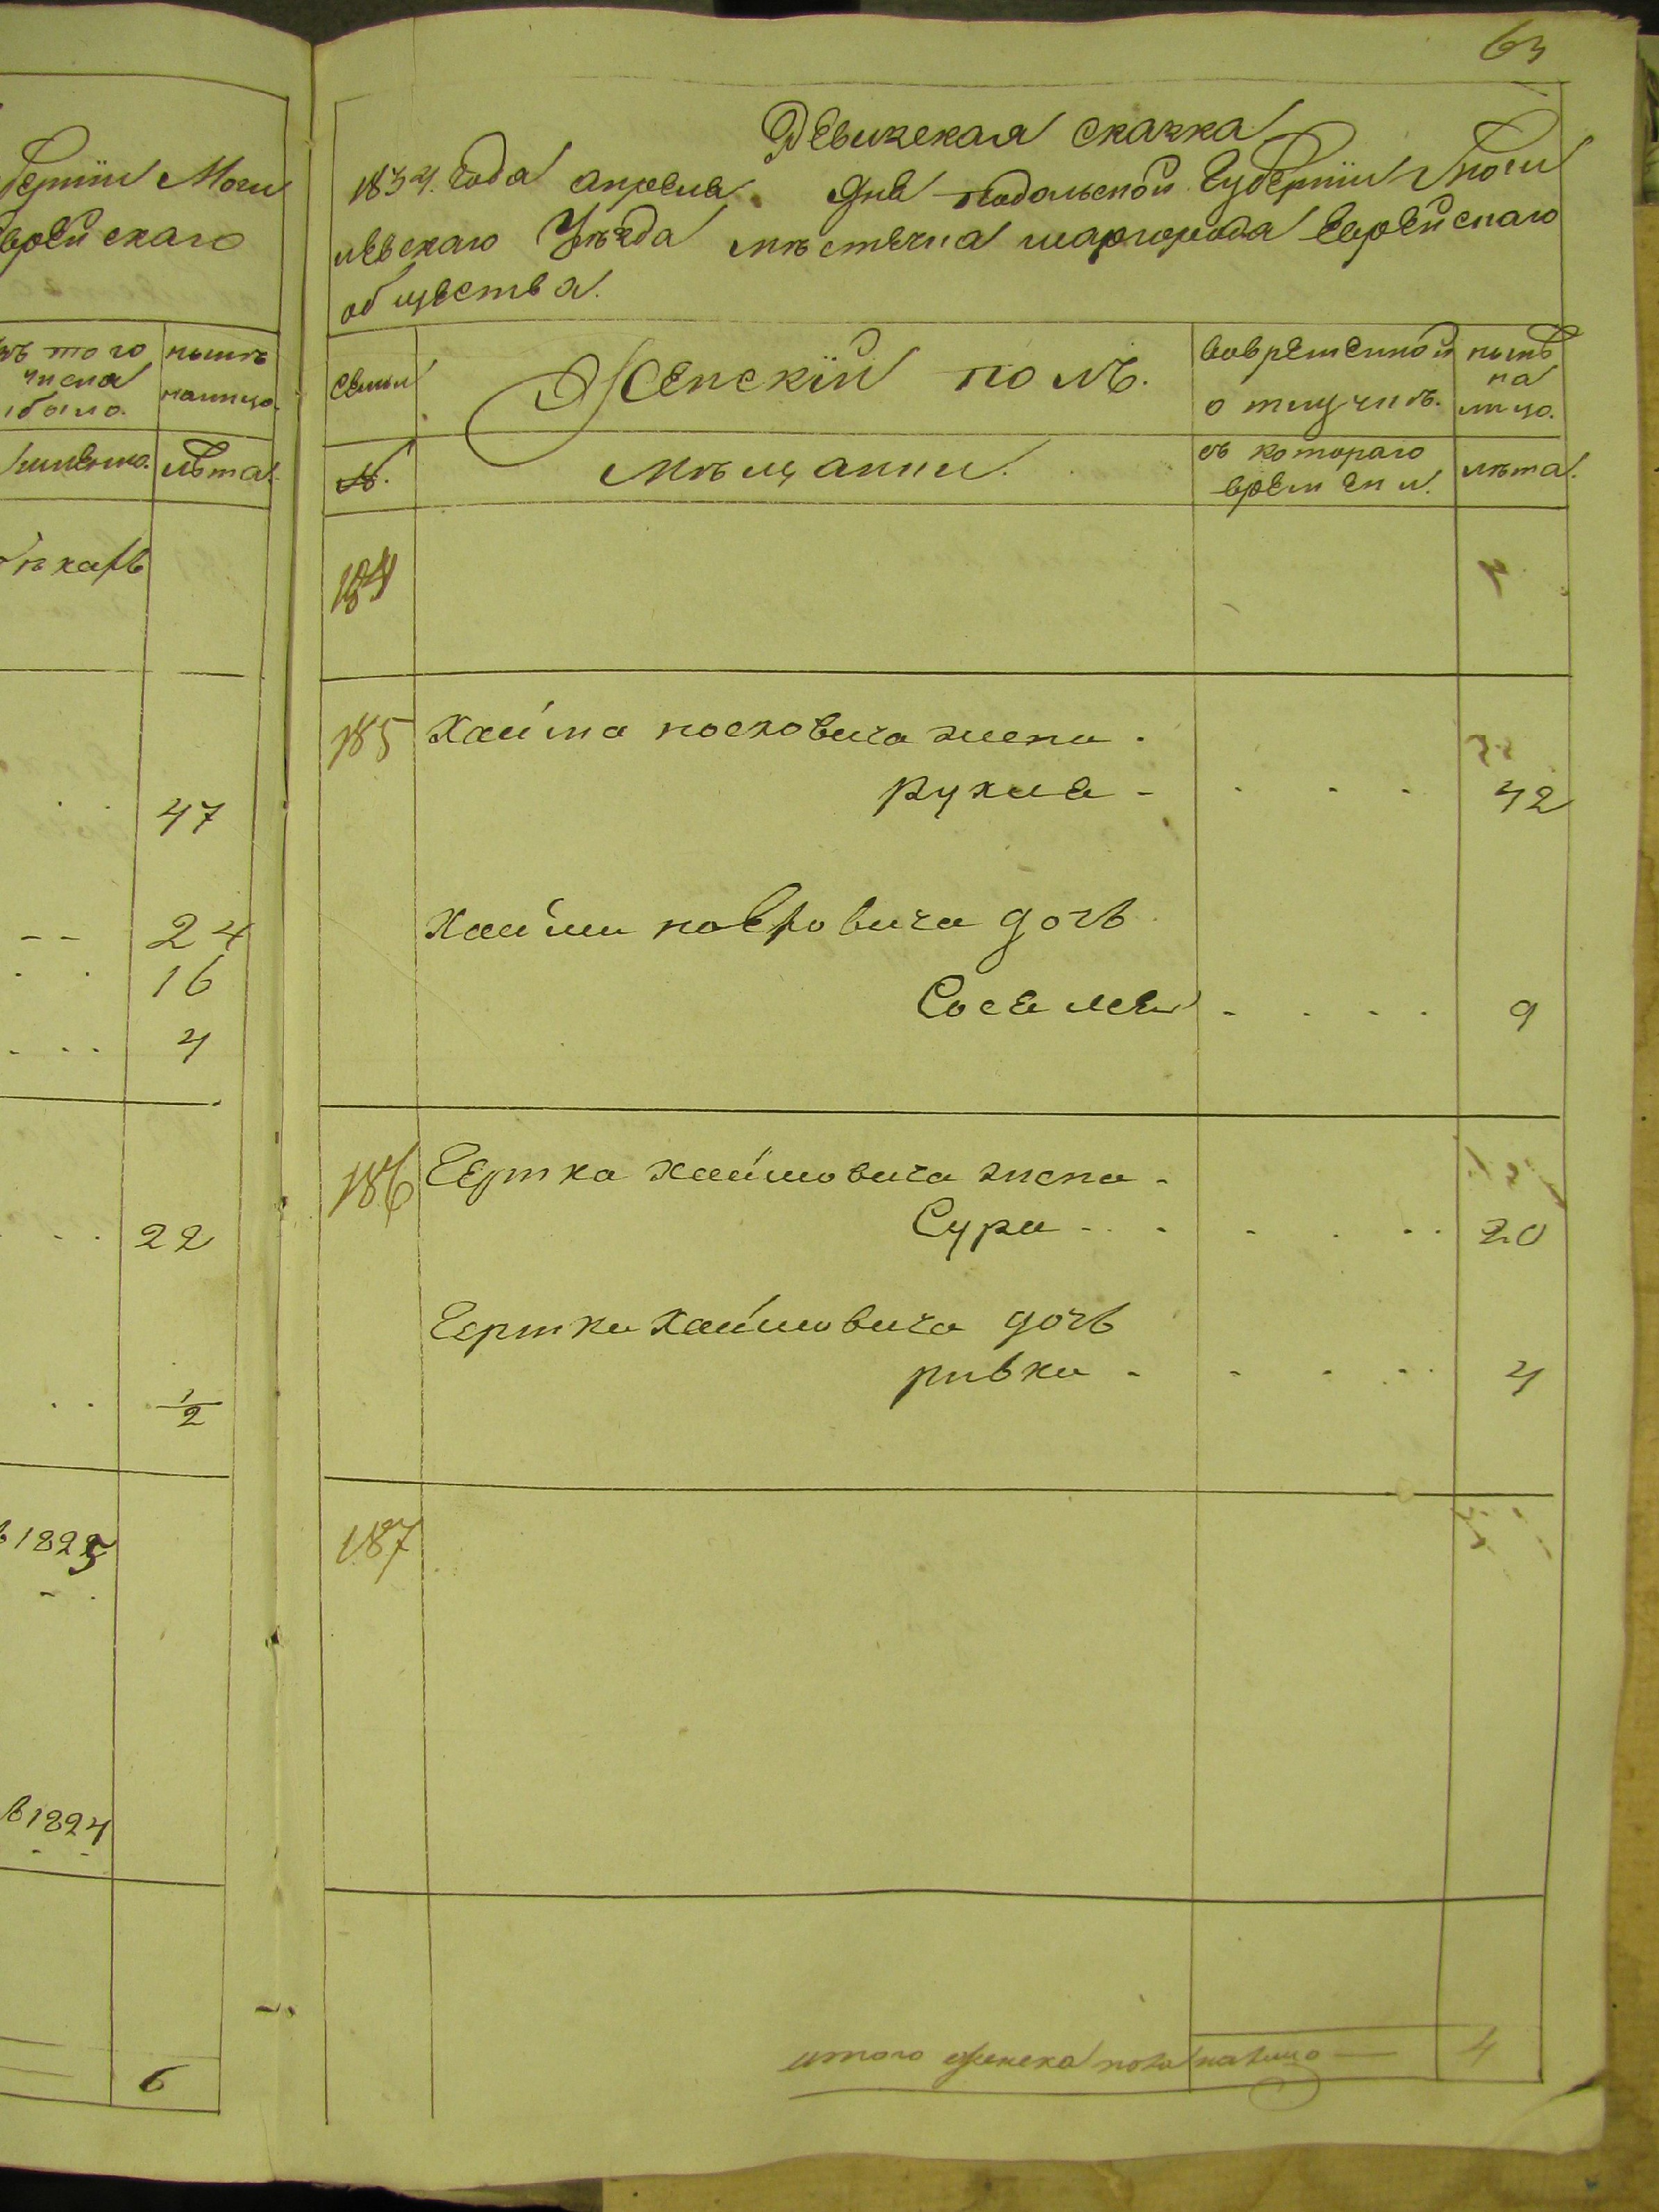 63
Ревизская сказка
1834. года апреля дня подольской Губернии Моги
левскаго Уѣзда мѣстечка шаргорода Еврейскаго
общества.
семьи
Женскій полъ.
вовременной
отлучкѣ.
нынѣ
на
лицо.
№.
мѣщанки.
съ котораго
времени.
лѣта.
184
185
Хаима иосковича жена
рухля
42
Хаима иосковича дочь
Сося лея
9
186
Гершка Хаимовича жена
Сура
20
Гершка Хаимовича дочь
ривка
4
187
итого женска пола налицо — 4
губерніи Моги
еврейскаго
изъ того
числа
выбыло.
нынѣ
налицо.
лѣта.
47
24
16
4
22
1/2
1825
в 1824
6